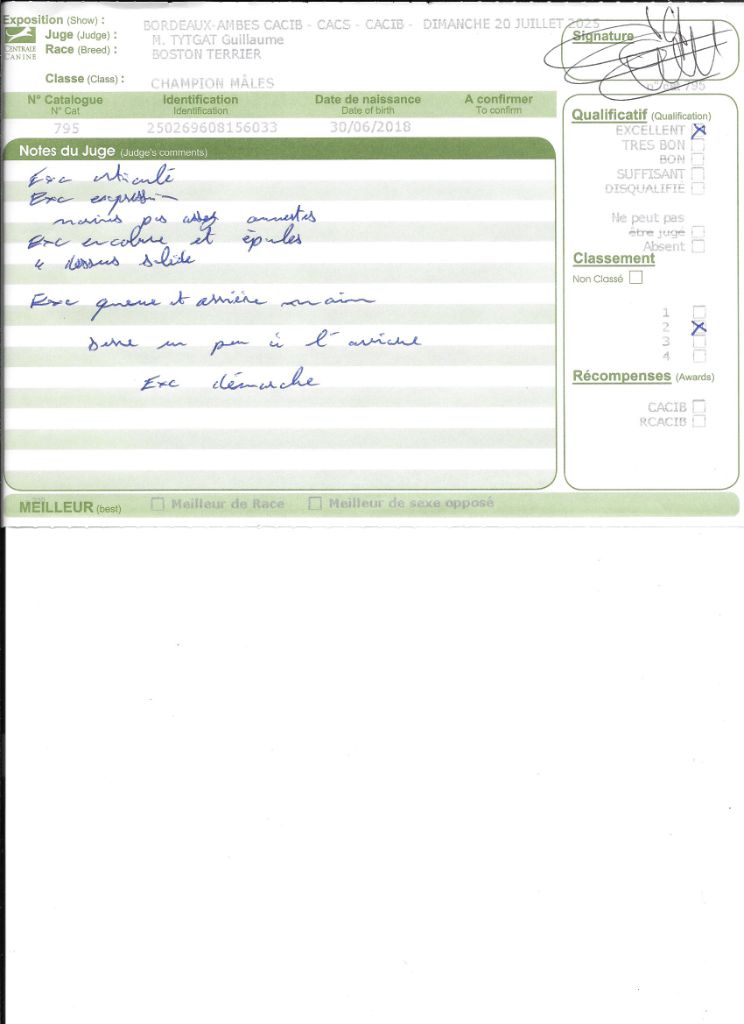 Exposition (Show) : BORDEAUX-AMBES CACIB - CACS - CACIB - DIMANCHE 20 JUILLET 2025
CENTRALE CANINE
Juge (Judge) : M. TYTGAT Guillaume
Race (Breed) : BOSTON TERRIER
Classe (Class) : CHAMPION MÂLES
Signature
n° cat 795
N° Catalogue Identification Date de naissance A confirmer
N° Cat Identification Date of birth To confirm
795 250269608156033 30/06/2018
Notes du Juge (Judge's comments)
Exc
Exc expression
pas assez
Exc encolure et épaules
dessus solide
Exc queue et arrière main
serre un peu à l'arrière
Exc démarche
Qualificatif (Qualification)
EXCELLENT
TRES BON
BON
SUFFISANT
DISQUALIFIE
Ne peut pas
être jugé
Absent
Classement
Non Classé
1
2
3
4
Récompenses (Awards)
CACIB
RCACIB
MEILLEUR (best) Meilleur de Race Meilleur de sexe opposé